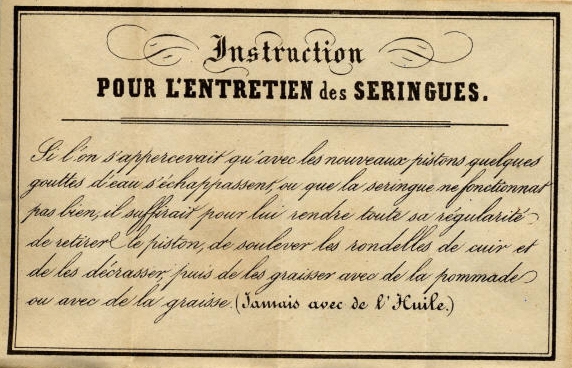 Instruction
POUR L'ENTRETIEN des SERINGUES.
Si l'on s'appercevait qu'avec les nouveaux pistons quelques
gouttes d'eau s'échappassent, ou que la seringue ne fonctionnat
pas bien, il suffirait pour lui rendre toute sa régularité
de retirer le piston, de soulever les rondelles de cuir et
de les décrasser, puis de les graisser avec de la pommade
ou avec de la graisse. (Jamais avec de l'Huile.)